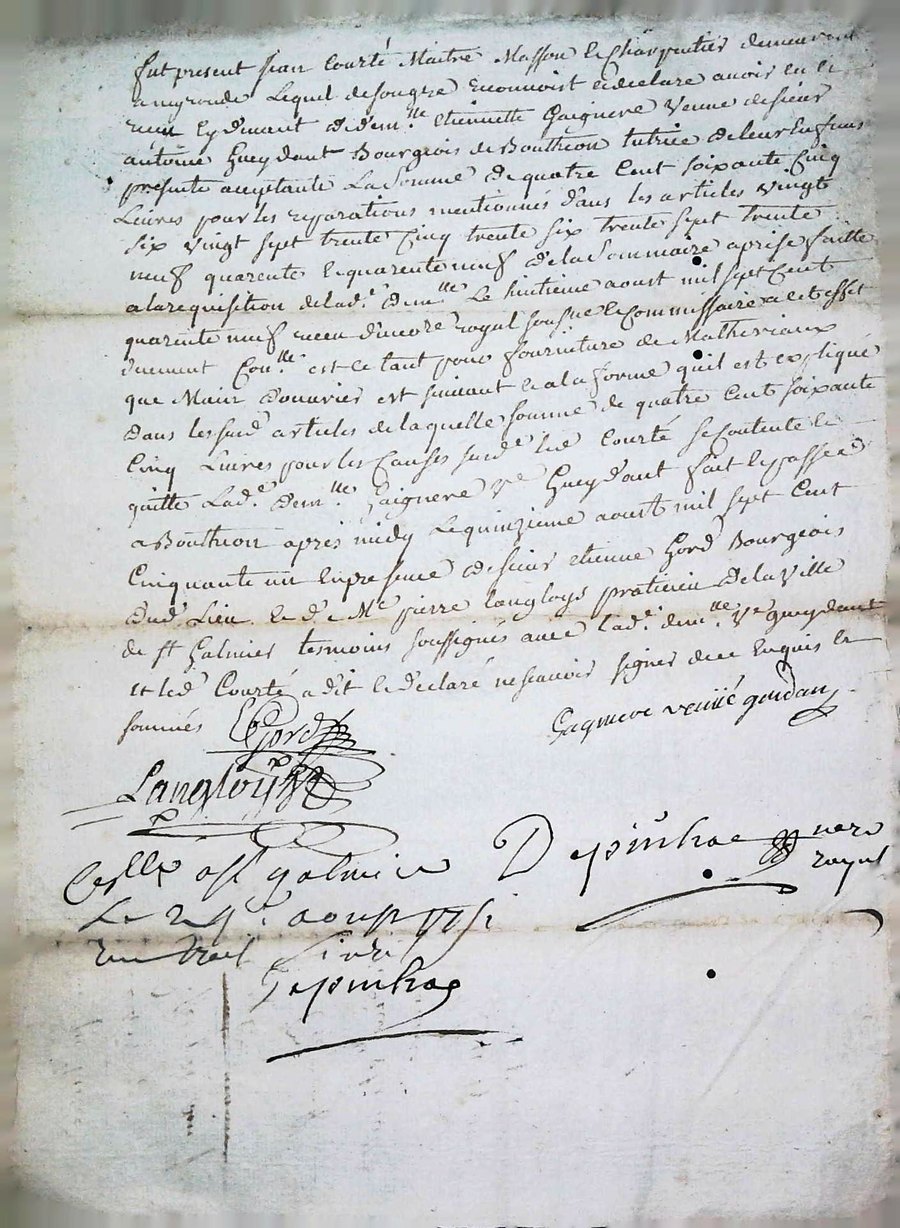 fut present Jean Courté Maitre Masson & Charpentier demeurant
a mygronde Lequel de son gre reconnoist & declare avoir eu &
receu cy devant de dem.lle etiennette Gaignere Veuve de sieur
antoine Gueydant Bourgeois de Bouthéon tutrice de leur Enfans
presente acceptante La Somme de quatre Cent soixante Cinq
Livres pour les reparations mentionnés dans les articles vingt
six vingt sept trente Cinq trente six trente sept trente
neuf quarente & quarente neuf de la Sommaire aprise faitte
a la requisition de lad.e dem.lle Le huitieme aoust mil sept Cent
quarente neuf receu d'icore royal sousné Commissaire a cet effet
duement Con.lle est ce tant pour fourniture de Matheriaux
que Main d'ouvrier et suivant & a la forme quil est expliqué
dans les surd articles de laquelle somme de quatre Cent soixante
Cinq Livres pour les Causes surd.e led Courté se Contente &
quitte Lad.e dem.lle Gaignere v.e Gueydant fait & passé
a Bouthéon apres midy Le quinzieme aoust mil sept Cent
Cinquante un En presence de sieur etienne Gord Bourgeois
dud. Lieu & de M.e pierre Langloys praticien de la Ville
de st Galmier tesmoins soussignés avec lad.e dem.lle V.e gueydant
et led Courté a dit & declaré ne scavoir signer de ce Enquis &
sommés EGord
Gagniere veuve guedan
Langloys
Depinhac no.re
royal
a st galmier
Le 24.e aoust 1751
Depinhac